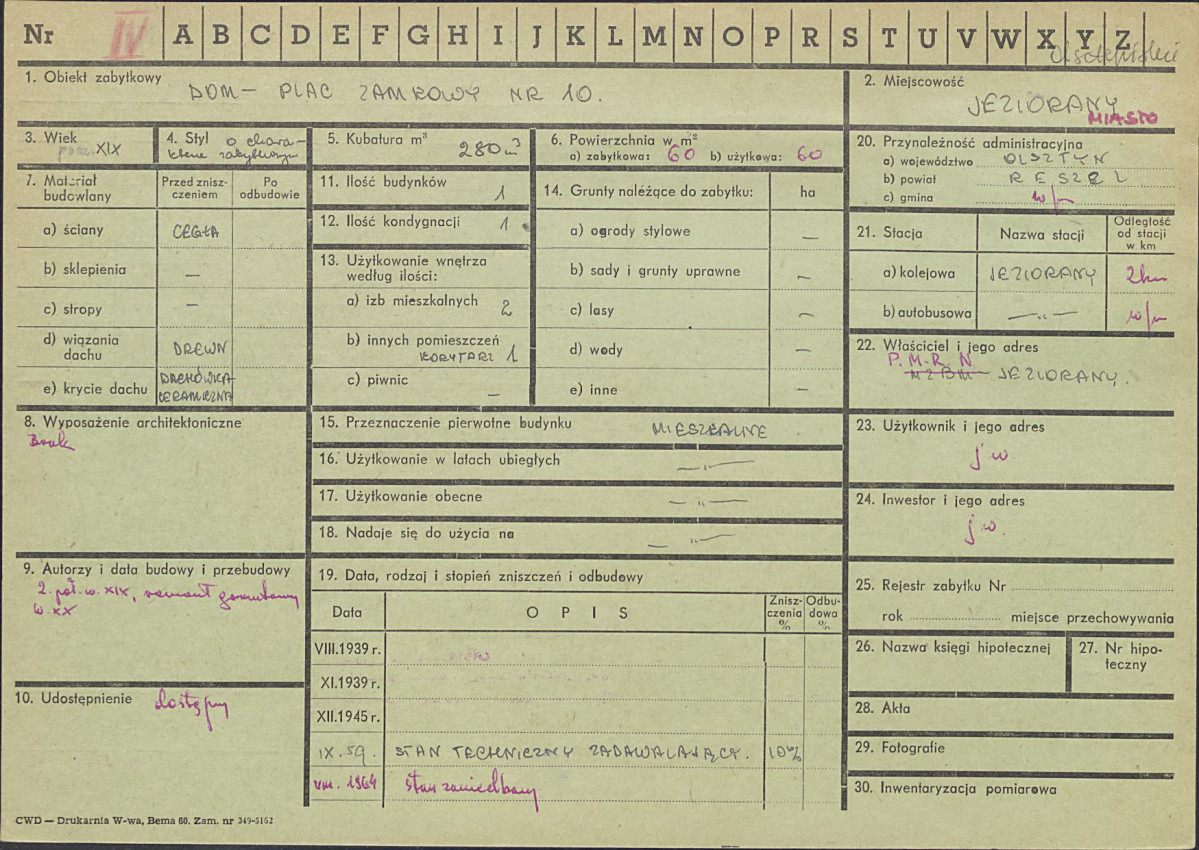 Nr IV A B C D E F G H I J K L M N O P R S T U V W X Y Z
1. Obiekt zabytkowy DOM – PLAC ZAMKOWY NR 10.
2. Miejscowość
JEZIORANY
MIASTO
3. Wiek
XIX
4. Styl o chara-
kterze zabytkowym
5. Kubatura m³ 280 m³
6. Powierzchnia w m²
a) zabytkowa: 60 b) użytkowa: 60
7. Materiał budowlany
Przed znisz-
czeniem
Po
odbudowie
a) ściany CEGŁA
b) sklepienia —
c) stropy —
d) wiązania
dachu DREWN
e) krycie dachu DACHÓWKA
CERAMICZNA
8. Wyposażenie architektoniczne
Brak
9. Autorzy i data budowy i przebudowy
2. poł. w. XIX, remont gruntowny
w XX
10. Udostępnienie dostępny
11. Ilość budynków 1
12. Ilość kondygnacji 1
13. Użytkowanie wnętrza
według ilości:
a) izb mieszkalnych 2
b) innych pomieszczeń
KORYTARZ 1
c) piwnic —
14. Grunty należące do zabytku: ha
a) ogrody stylowe —
b) sady i grunty uprawne —
c) lasy —
d) wody —
e) inne —
15. Przeznaczenie pierwotne budynku MIESZKALNE
16. Użytkowanie w latach ubiegłych —"—
17. Użytkowanie obecne —"—
18. Nadaje się do użycia na —"—
19. Data, rodzaj i stopień zniszczeń i odbudowy
Data OPIS Znisz-
czenia
%
Odbu-
dowa
%
VIII.1939 r.
XI.1939 r.
XII.1945 r.
IX. 59. STAN TECHNICZNY ZADAWALAJĄCY. 10%
VIII. 1964 stan zaniedbany
20. Przynależność administracyjna
a) województwo OLSZTYN
b) powiat RESZEL
c) gmina w/m
21. Stacja Nazwa stacji
Odległość
od stacji
w km
a) kolejowa JEZIORANY 2km
b) autobusowa —"— w/m
22. Właściciel i jego adres
P.M.R.N.
MZBM JEZIORANY.
23. Użytkownik i jego adres
j w
24. Inwestor i jego adres
j w.
25. Rejestr zabytku Nr
rok miejsce przechowywania
26. Nazwa księgi hipotecznej
27. Nr hipo-
teczny
28. Akta
29. Fotografie
30. Inwentaryzacja pomiarowa
CWD — Drukarnia W-wa, Bema 60. Zam. nr 349-5162